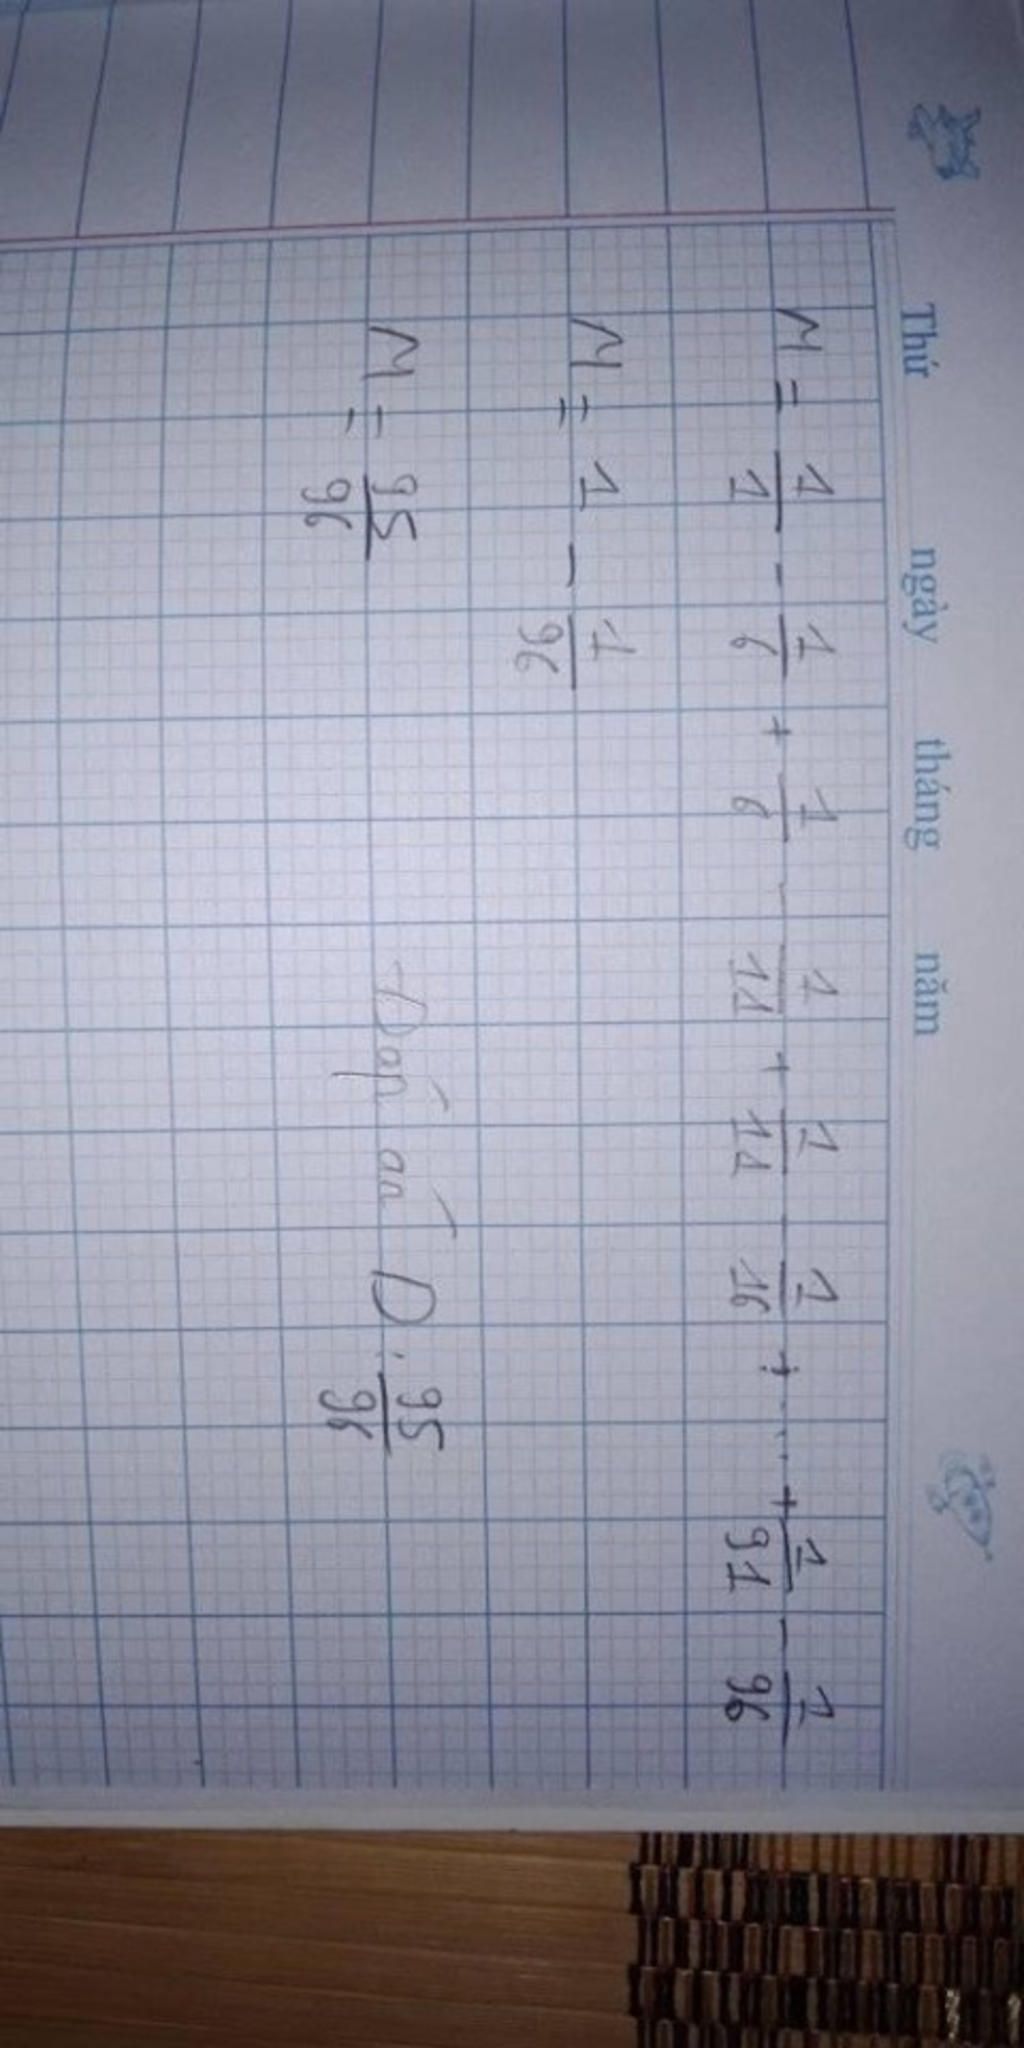 Thứ ngày tháng năm
M = 1/1 - 1/6 + 1/6 - 1/11 + 1/11 - 1/16 + .... + 1/91 - 1/96
M = 1 - 1/96
M = 95/96
Đáp án D. 95/96